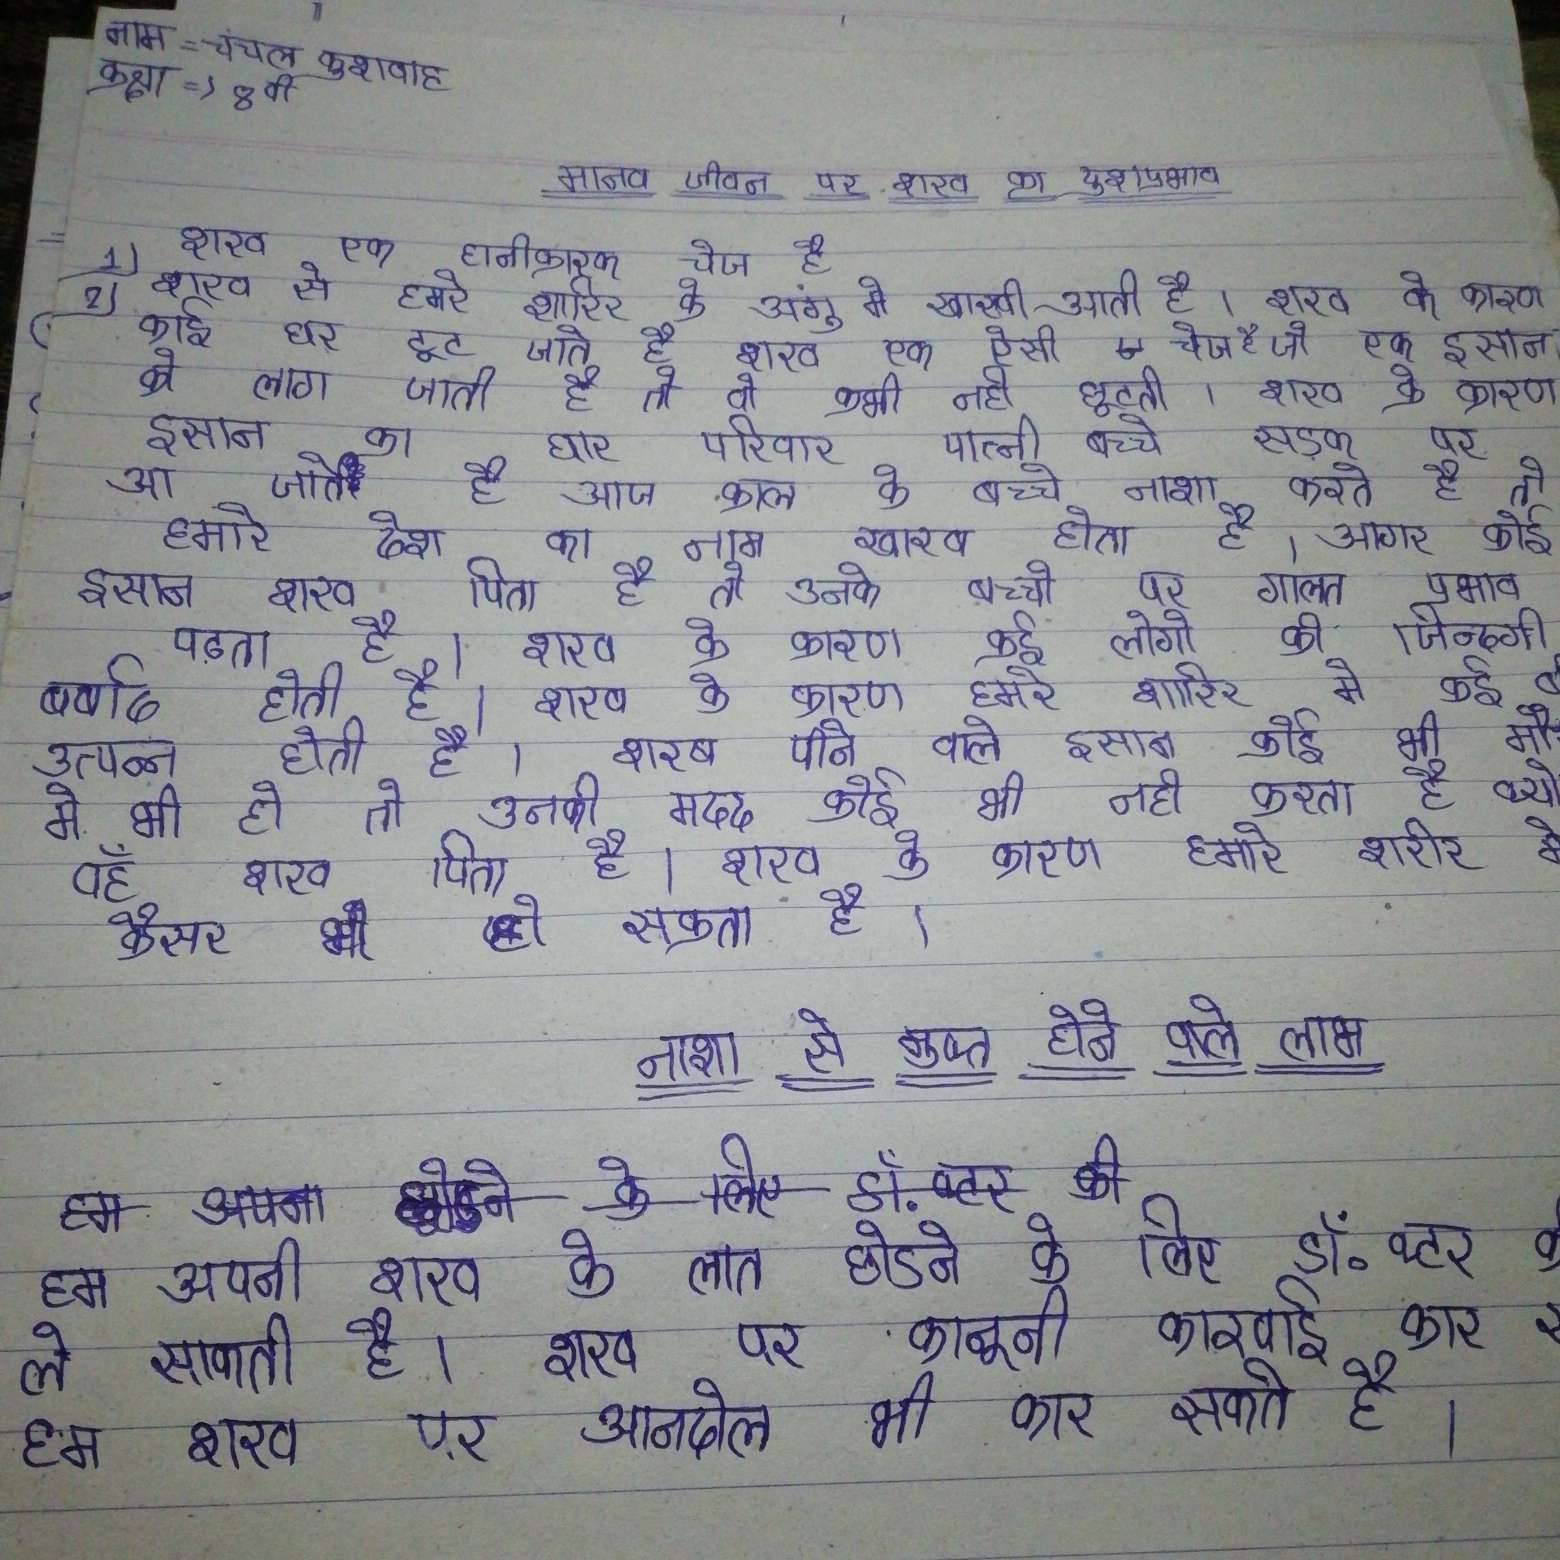 नाम = चंचल कुशवाह
कक्षा => 8 वी
मानव जीवन पर शरब का दुशप्रभाव
1) शरब एक हानीकारक चेज है
2) शरब से हमरे शारिर के अंगु मे खाखी आती है । शरब के कारण
काई घर टूट जाते है शरब एक ऐसी चेज है जो एक इसान
को लाग जाती है तो वो कभी नही छूटती । शरब के कारण
इसान का घार परिवार पात्नी बच्चे सड़क पर
आ जाते है आज काल के बच्चे नाशा करते है तो
हमारे देश का नाम खारब होता है । आगर कोई
इसान शरब पिता है तो उनके बच्चो पर गालत प्रभाव
पढ़ता है । शरब के कारण कई लोगो की जिन्दगी
बर्बाद होती है । शरब के कारण हमरे शारिर मे कई
उत्पन्न होती है । शरब पीने वाले इसान कोई भी
मे भी हो तो उनकी मदद कोई भी नही करता है क्यो
वहँ शरब पिता है । शरब के कारण हमारे शरीर मे
कैसर भी हो सकता है ।
नाशा से मुक्त होने वाले लाभ
हम अपना छोडने के लिए डॉ. क्टर की
हम अपनी शरब के लात छोडने के लिए डॉ. क्टर की
ले साकती है । शरब पर कानूनी कारवाई कार
हम शरब पर आनदोल भी कार सकते है ।